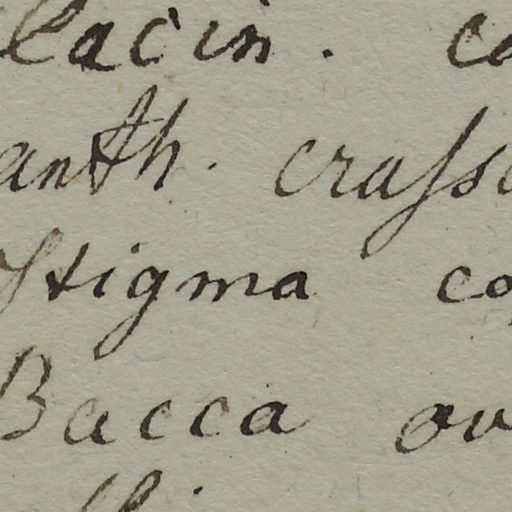 lacin. co
anth. crasse
Stigma co
Bacca ov